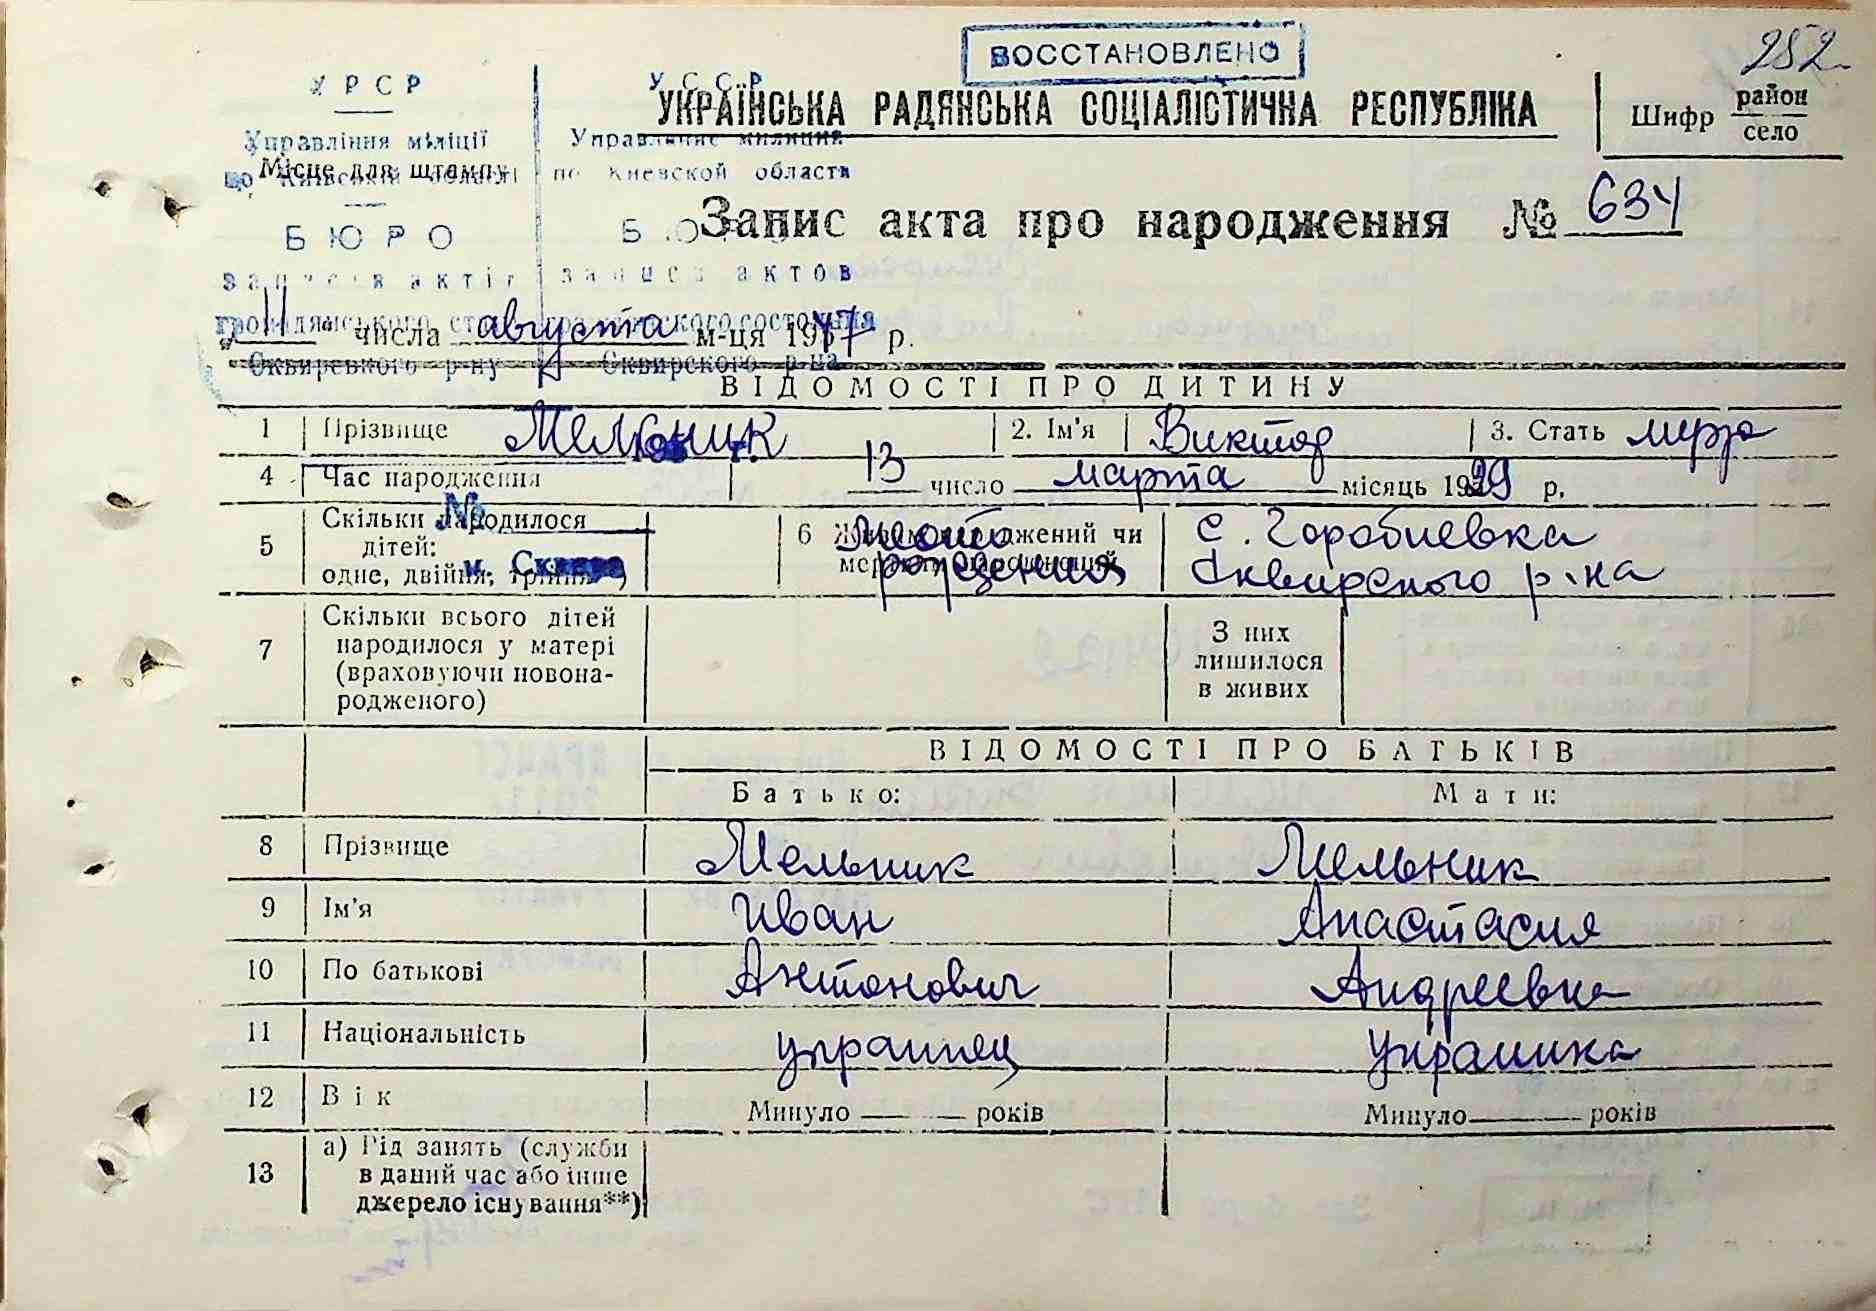 ВОССТАНОВЛЕНО
252
УРСР
УССР
УКРАЇНСЬКА РАДЯНСЬКА СОЦІАЛІСТИЧНА РЕСПУБЛІКА
Шифр район
село
Управління міліції
Управление милиции
Місце для штампу
по Київській області
по Киевской области
Запис акта про народження № 634
БЮРО
БЮРО
записів актів
записи актов
громадянського стану
гражданского состояния
"11" числа августа м-ця 1947 р.
Сквирського р-ну
Сквирского р-на
ВІДОМОСТІ ПРО ДИТИНУ
1 Прізвище Мельник 2. Ім'я Виктор 3. Стать муж
4 Час народження 13 число марта місяць 1929 р.
№
м. Сквира
5 Скільки народилося
дітей:
одне, двійня, трійня*)
6 Живим народжений чи
мертвим народжений
Место
рождения
с. Горобиевка
Сквирского р-на
7 Скільки всього дітей
народилося у матері
(враховуючи новона-
родженого)
З них
лишилося
в живих
ВІДОМОСТІ ПРО БАТЬКІВ
Батько: Мати:
8 Прізвище Мельник Мельник
9 Ім'я Иван Анастасия
10 По батькові Антонович Андреевна
11 Національність украинец украинка
12 Вік Минуло — — років Минуло — років
13 а) Рід занять (служби
в даний час або інше
джерело існування**)